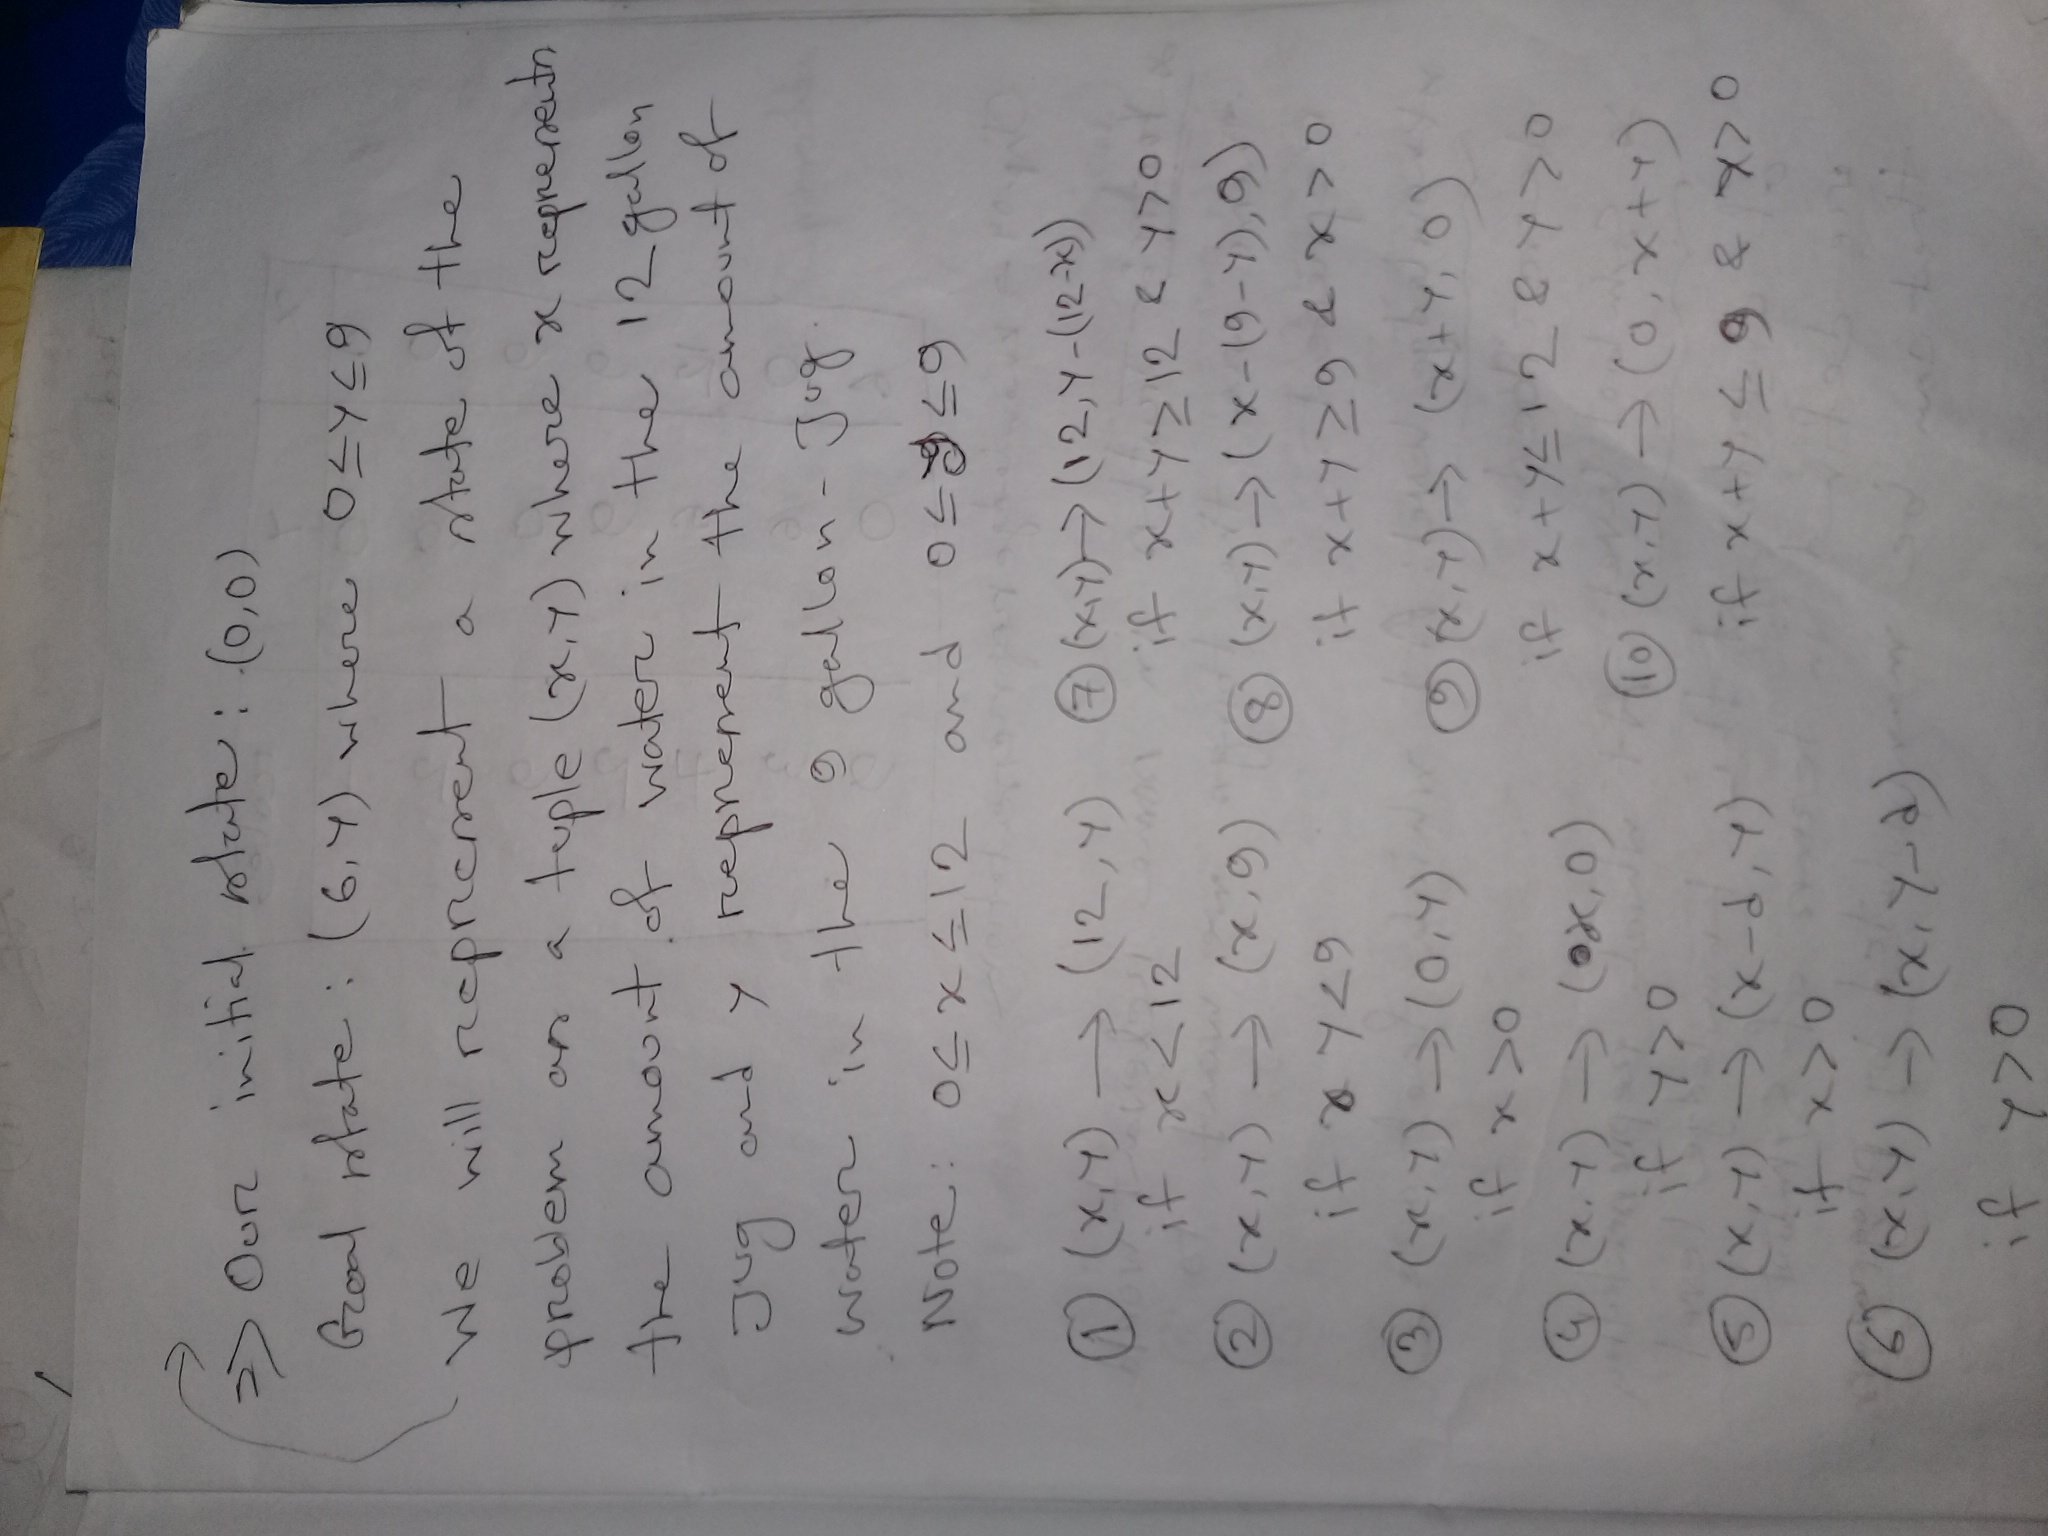 => Our initial state : (0,0)
Goal state : (6,Y) where 0≤Y≤9
We will represent a state of the
problem as a tuple (x,Y) where x represents
the amount of water in the 12 gallon
Jug and Y represent the amount of
water in the 9 gallon - Jug.
Note: 0≤x≤12 and 0≤y≤9
① (x,Y) → (12,Y)
if x<12
② (x,Y) → (x,9)
if Y<9
③ (x,Y) → (0,Y)
if x>0
④ (x,Y) → (x,0)
if Y>0
⑤ (x,Y) → (x-d,Y)
if x>0
⑥ (x,Y) → (x,Y-d)
if Y>0
⑦ (x,Y) → (12,Y-(12-x))
if x+Y≥12 & Y>0
⑧ (x,Y) → (x-(9-Y),9)
if x+Y≥9 & x>0
⑨ (x,Y) → (x+Y,0)
if x+Y≤12 & Y>0
⑩ (x,Y) → (0,x+Y)
if x+Y≤9 & x>0